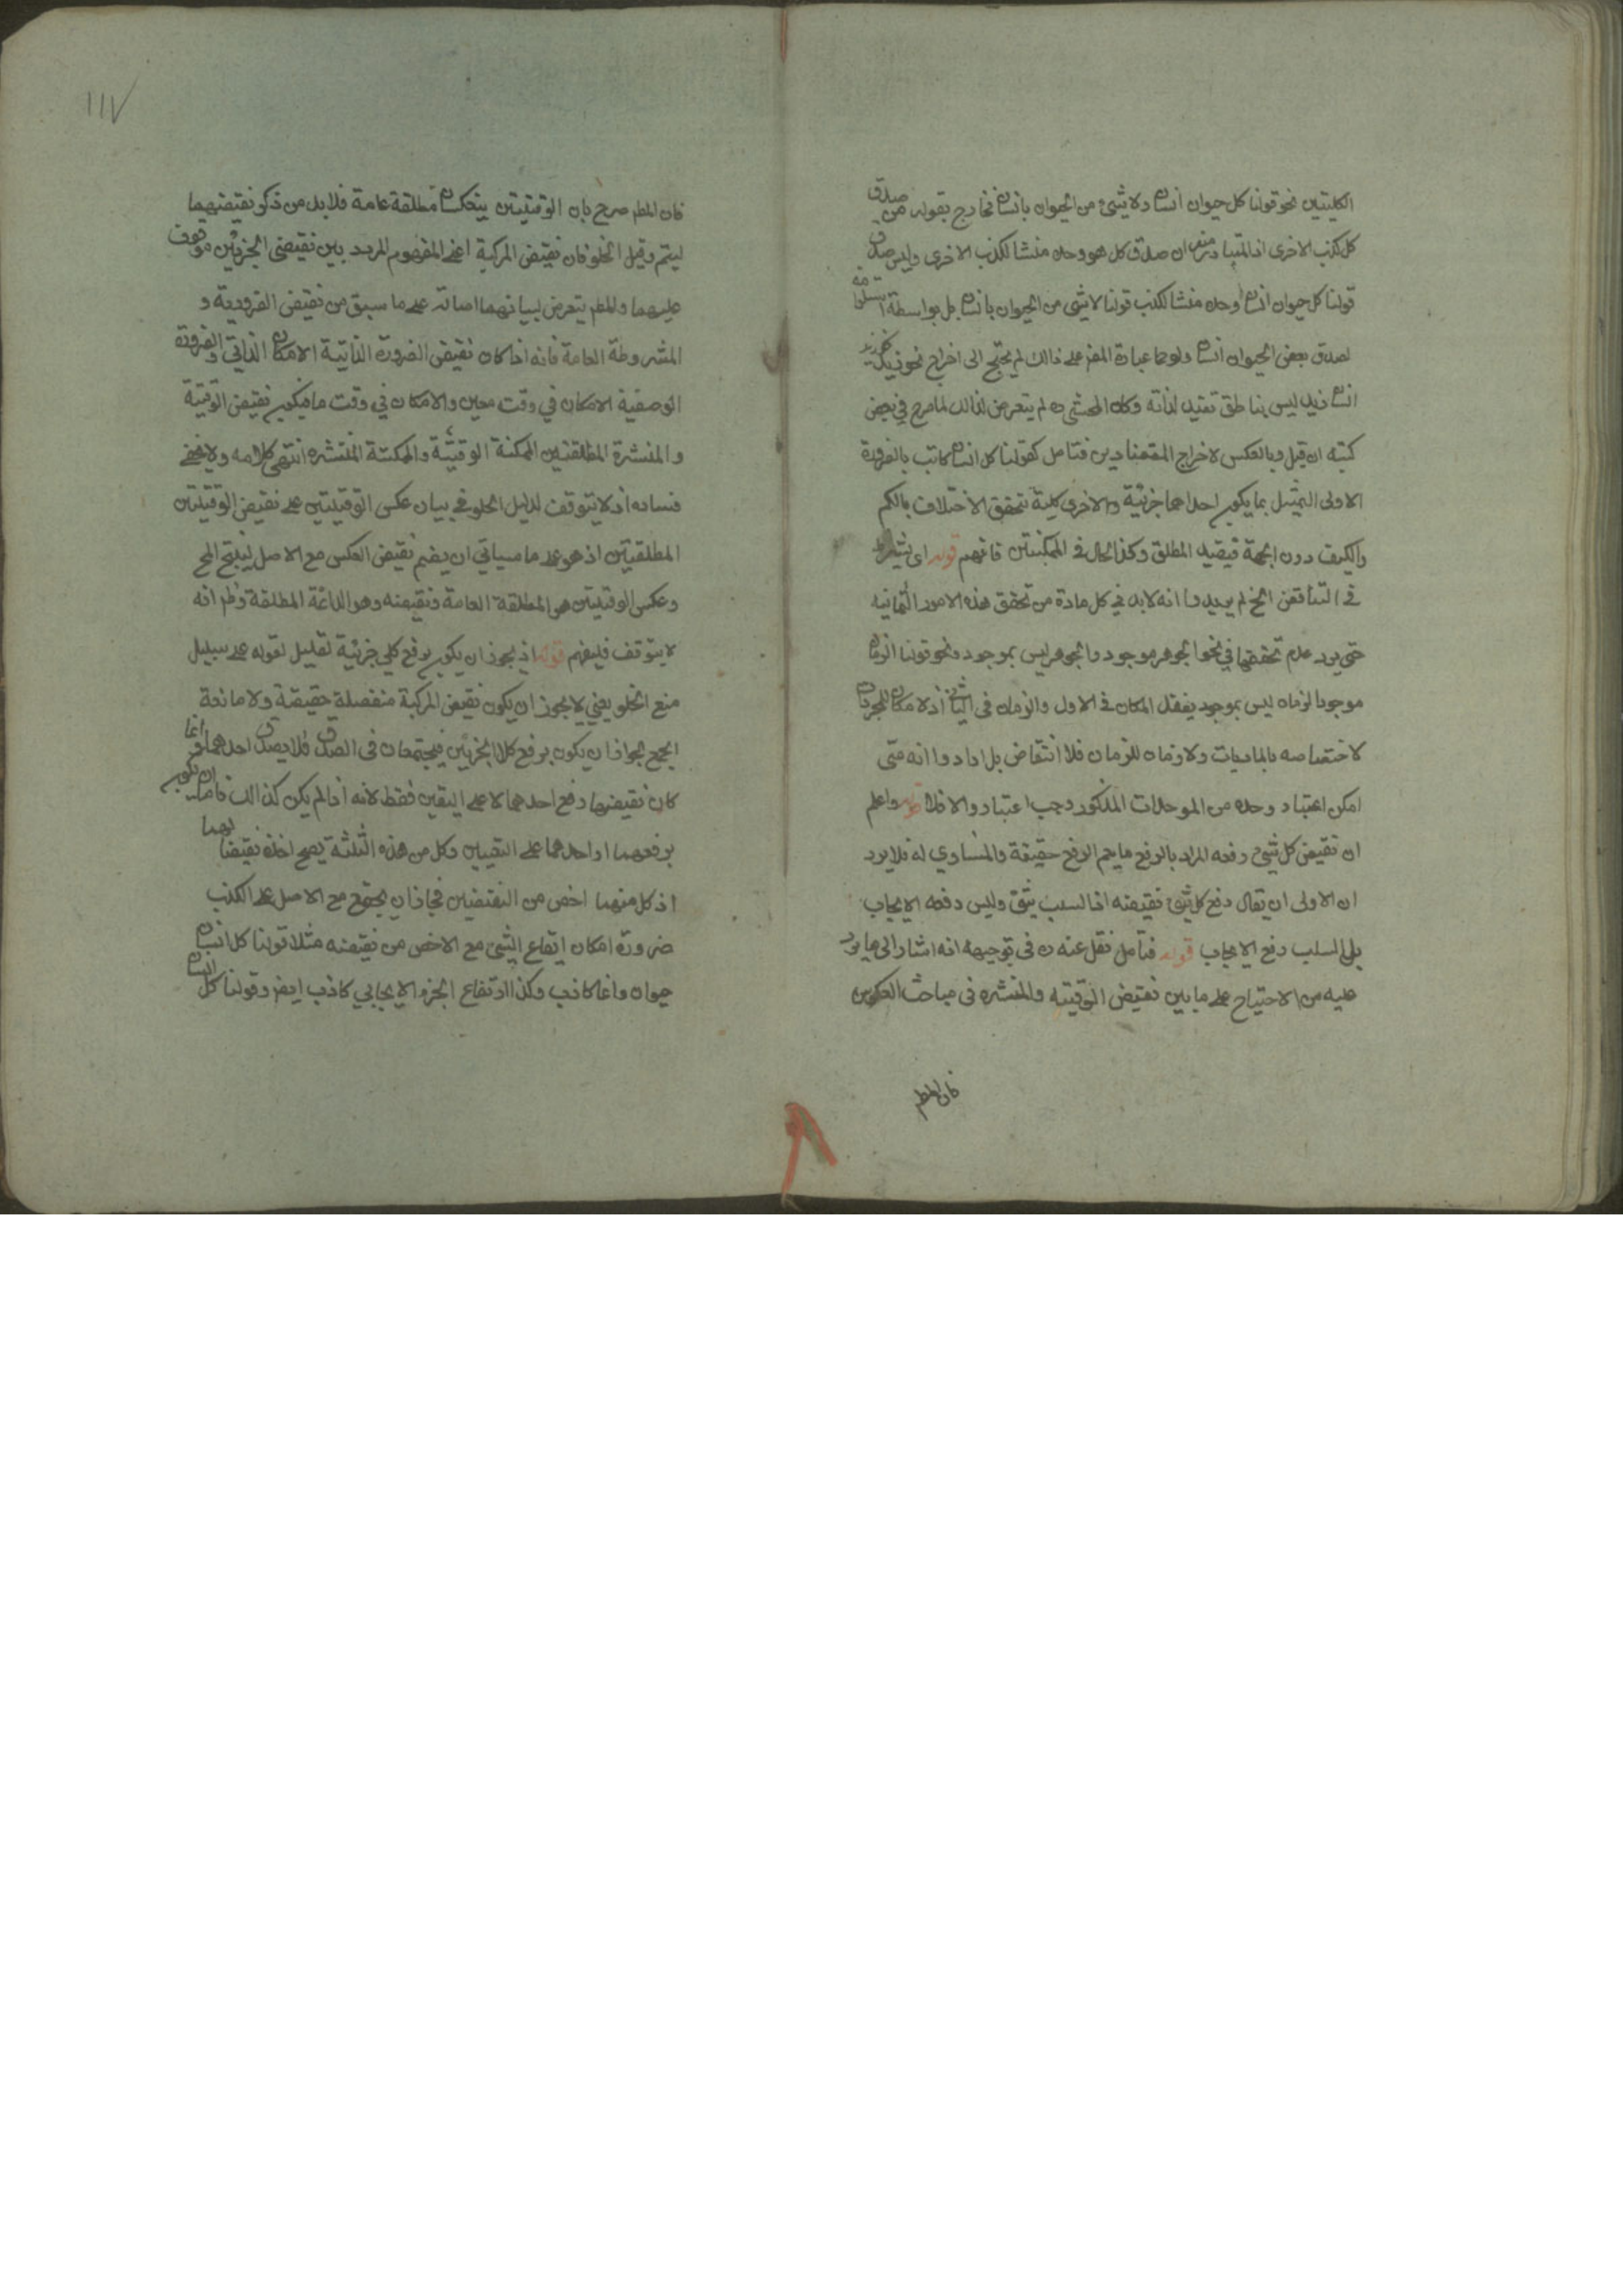 الكليتين نحو قولنا كل حيوان انسان ولا شيء من الحيوان بانسان فخارج بقوله من صدق
كل كذب الاخرى اذ المتبادر منه ان صدق كل هو وحده منشا لكذب الاخرى وليس صدق
قولنا كل حيوان انسان وحده منشا لكذب قولنا لا شيء من الحيوان بانسان بل بواسطة استلزامه
لصدق بعض الحيوان انسان ولو حمل عبارة المص على ذالك لم يحتج الى اخراج نحو زيد
انسان زيد ليس بناطق تقيد لذاته وكان المحشي ره لم يتعرض لذالك لما صرح في بعض
كتبه ان قيل وبالعكس لاخراج المتضادين فتامل كقولنا كل انسان كاتب بالضرورة
الاولى التمثيل بما يكون احداهما جزئية والاخرى كلية ليتحقق الاختلاف بالكم
والكيف دون الجهة فيفيد المطلق وكذا الحال في الممكنتين فافهم قوله اى يشترط
في التناقض الخ لم يريدوا انه لابد في كل مادة من تحقق هذه الامور الثمانيه
حتى يرد عدم تحققها في نحو الجوهر موجود والجوهر ليس بموجود ونحو قولنا الزمان
موجود الزمان ليس بموجود بفقد المكان في الاول والزمان في الثاني اذ لا مكان للمجردات
لاختصاصه بالماديات ولا زمان للزمان فلا انتقاض بل ارادوا انه متى
امكن اعتبار وحده من الوحدات المذكور وجب اعتباره والا فلا قوله واعلم
ان نقيض كل شيء رفعه المراد بالرفع ما يعم الرفع حقيقة والمساوي له فلا يرد
ان الاولى ان يقال رفع كل شيء نقيضه اذ السلب شيء وليس رفعه الايجاب
بل السلب رفع الايجاب قوله فتامل نقل عنه ره في توجيهه انه اشار الى ما يرد
عليه من الاحتياج على ما بين نقيض الوقتية والمنتشره في مباحث العكوس
فان المط
١١٧
فان المط صرح بان الوقتيتين ينعكسان مطلقة عامة فلابد من ذكر نقيضهما
ليتم دليل الخلو فان نقيض المركبة اعني المفهوم المردد بين نقيضى الجزئين موقوف
عليهما والمط لم يتعرض لبيانهما اصالة على ما سبق من نقيض الضرورية و
المشروطة العامة فانه اذا كان نقيض الضرورة الذاتية الامكان الذاتي والضرورة
الوصفية الامكان في وقت معين والامكان في وقت ما فيكون نقيض الوقتية
والمنتشرة المطلقتين الممكنة الوقتية والممكنة المنتشره انتهى كلامه ولا يخفى
فساده اذ لا يتوقف لدليل الخلو في بيان عكس الوقتيتين على نقيض الوقتيتين
المطلقتين اذ هو على ما سياتي ان يضم نقيض العكس مع الاصل لينتج المح
وعكس الوقتيتين هو المطلقة العامة ونقيضه وهو الدائمة المطلقة وظ انه
لا يتوقف فليفهم قوله اذ يجوز ان يكون برفع كلي جزئية تعليل لقوله على سبيل
منع الخلو يعني لا يجوز ان يكون نقيض المركبة منفصلة حقيقة ولا مانعة
الجمع لجواز ان يكون برفع كلا الجزئين فيجتمعان في الصدق فلا يصدق احدهما وانما
كان نقيضها رفع احدهما لا على اليقين فقط لانه اذا لم يكن كذالك فاما ان يكون
برفعهما او احدهما على التعيين وكل من هذه الثلثة لا يصح اخذه نقيضا لهما
اذ كل منهما اخص من النقيضين فجاز ان يجتمع مع الاصل على الكذب
ضرورة امكان ارتفاع الشيء مع الاخص من نقيضه مثلا قولنا كل انسان
حيوان دائما كاذب وكذا ارتفاع الجزء الايجابي كاذب ايض وقولنا كل انسان